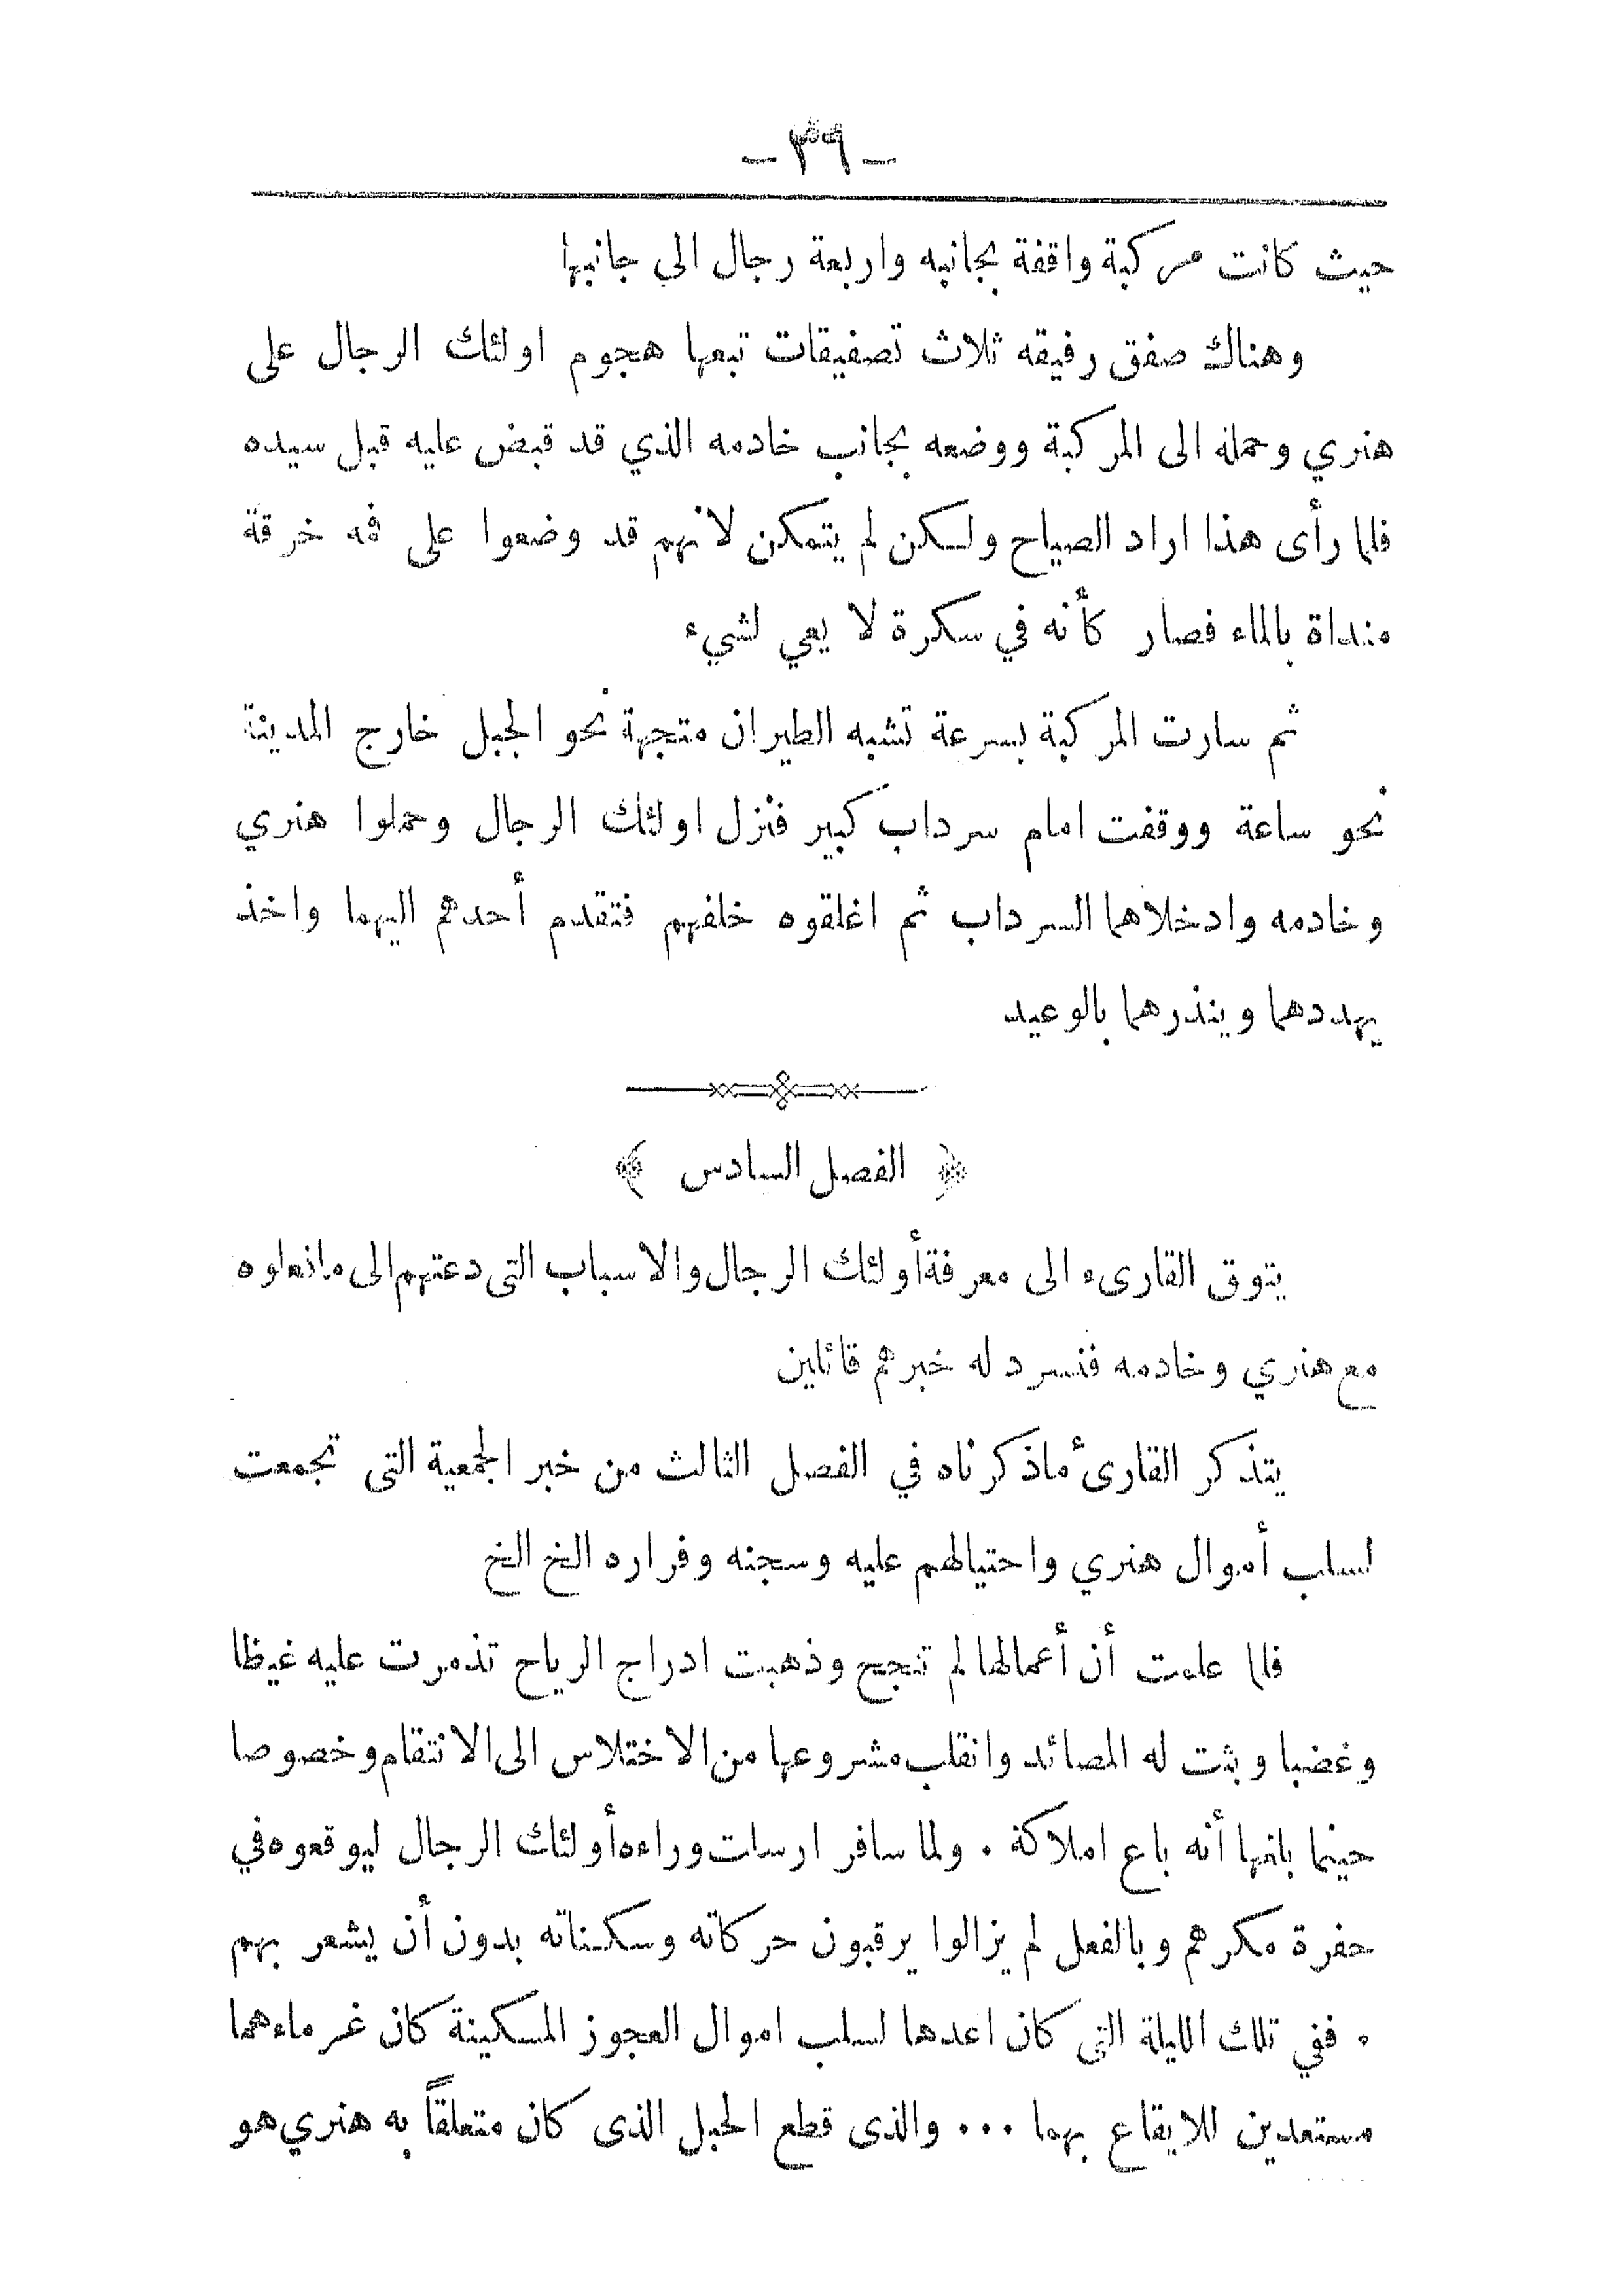 - ٣٩ -
حيث كانت مركبة واقفة بجانبه واربعة رجال الى جانبها
وهناك صفق رفيقه ثلاث تصفيقات تبعها هجوم اولئك الرجال على
هنري وحمله الى المركبة ووضعه بجانب خادمه الذي قد قبض عليه قبل سيده
فلما رأى هذا اراد الصياح ولكن لم يتمكن لانهم قد وضعوا على فمه خرقة
منداة بالماء فصار كأنه في سكرة لا يعي لشيء
ثم سارت المركبة بسرعة تشبه الطيران متجهة نحو الجبل خارج المدينة
نحو ساعة ووقفت امام سرداب كبير فنزل اولئك الرجال وحملوا هنري
وخادمه وادخلاهما السرداب ثم اغلقوه خلفهم فتقدم أحدهم اليهما واخذ
يهددهما وينذرهما بالوعيد
﴿ الفصل السادس ﴾
يتوق القارىء الى معرفة أولئك الرجال والاسباب التى دعتهم الى مافعلوه
مع هنري وخادمه فنسرد له خبرهم قائلين
يتذكر القارئ ماذكرناه في الفصل الثالث من خبر الجمعية التى تجمعت
لسلب أموال هنري واحتيالهم عليه وسجنه وفراره الخ الخ
فلما علمت أن أعمالها لم تنجح وذهبت ادراج الرياح تذمرت عليه غيظا
وغضبا وبثت له المصائد وانقلب مشروعها من الاختلاس الى الانتقام وخصوصا
حينما بلغها أنه باع املاكة . ولما سافر ارسلت وراءه أولئك الرجال ليوقعوه في
حفرة مكرهم وبالفعل لم يزالوا يرقبون حركاته وسكناته بدون أن يشعر بهم
. ففي تلك الليلة التي كان اعدها لسلب اموال العجوز المسكينة كان غرماءهما
مستعدين للايقاع بهما ... والذى قطع الحبل الذى كان متعلقاً به هنري هو